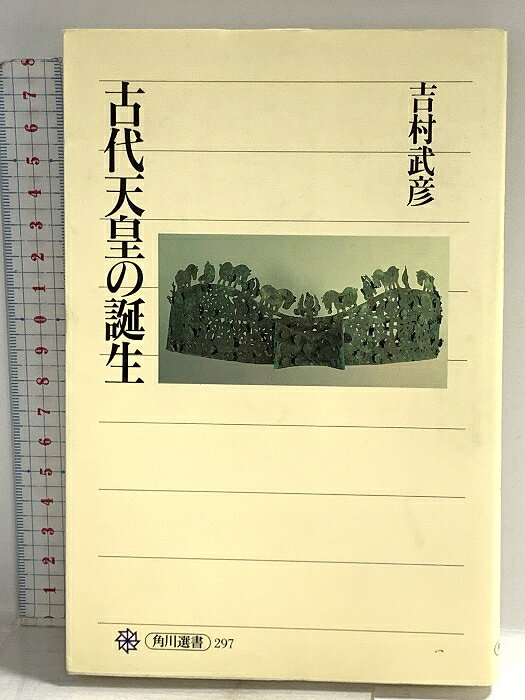 吉村武彦
古代天皇の誕生
角川選書 297
8
7
6
5
4
3
2
1
0
9
8
7
6
5
4
3
2
1